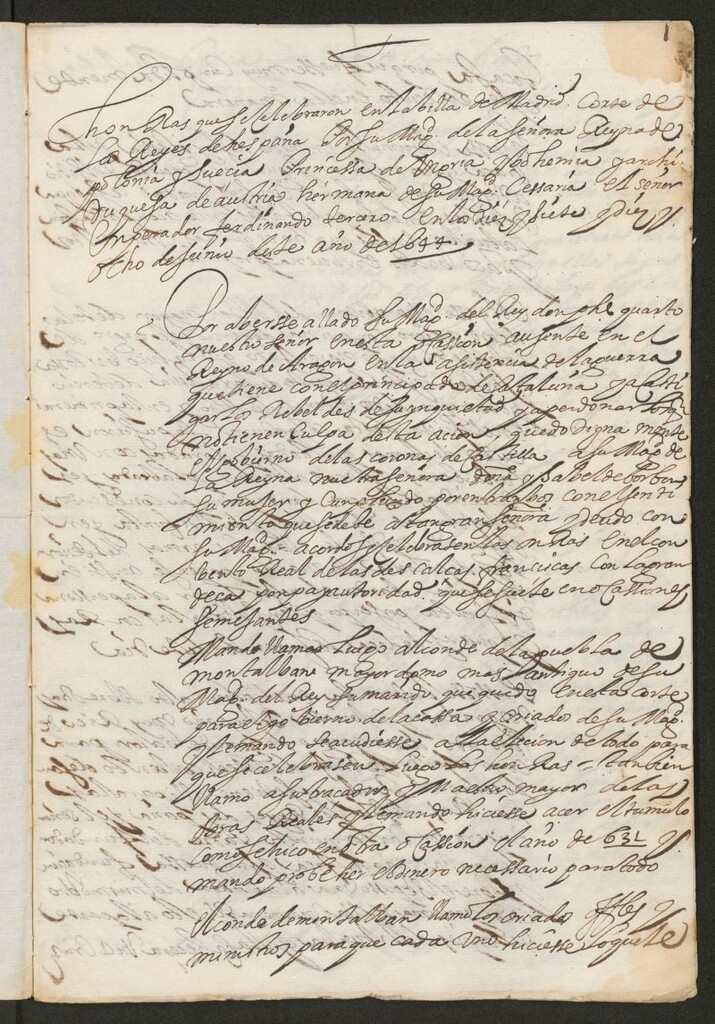 1
Honrras que se selebraron en la billa de Madrid Corte de
Los Reyes de hespaña Por su Magd. de la señora Reyna de
polonia y suecia Princessa de Ungria y bohemia y archi
Duquesa de austria hermana de su Magd. Cessaria el señor
Emperador ferdinando tercero En los diez y siete y diez y
ocho de Junio deste año de 1644
Por aberse allado su Magd. del Rey don phe. quarto
nuestro señor en esta ocassion ausente en el
Reyno de Aragon en la asistencia de la guerra
que tiene con el principado de Cataluña y a casti
gar los Rebeldes de su ynquietud y a perdonar los q
no tienen Culpa desta acion, quedo digna mente
el gobierno de las coronas de Castilla a su Magd. de
La Reyna nuestra señora doña ysabel de borbon
su muger y Cumpliendo por entrambos con el senti
miento que se debe a tan gran señora y deudo con
su Magd. acordo se selebrasen las onrras en el con
bento Real de las descalcas franciscas con la gran
deca pompa y autoridad que se suele en ocassiones
semejantes
Mando llamar luego al conde de la puebla de
montalban mayordomo mas antiguo de su
Magd. del Rey su marido que quedo en esta corte
para el gobierno de la cassa y criados de su Magd.
y le mando se acudiesse a la de todo para
que se celebrasen luego las honrras = tambien
llamo a su tracador y Maestro mayor de las
obras Reales y le mando hiciesse acer el tumulo
como se hico en otra ocassion el año de 631 y
mando probeher el dinero necessario para todo
el conde de montalban llamo los criados y
ministros para que cada uno hiciesse lo que le